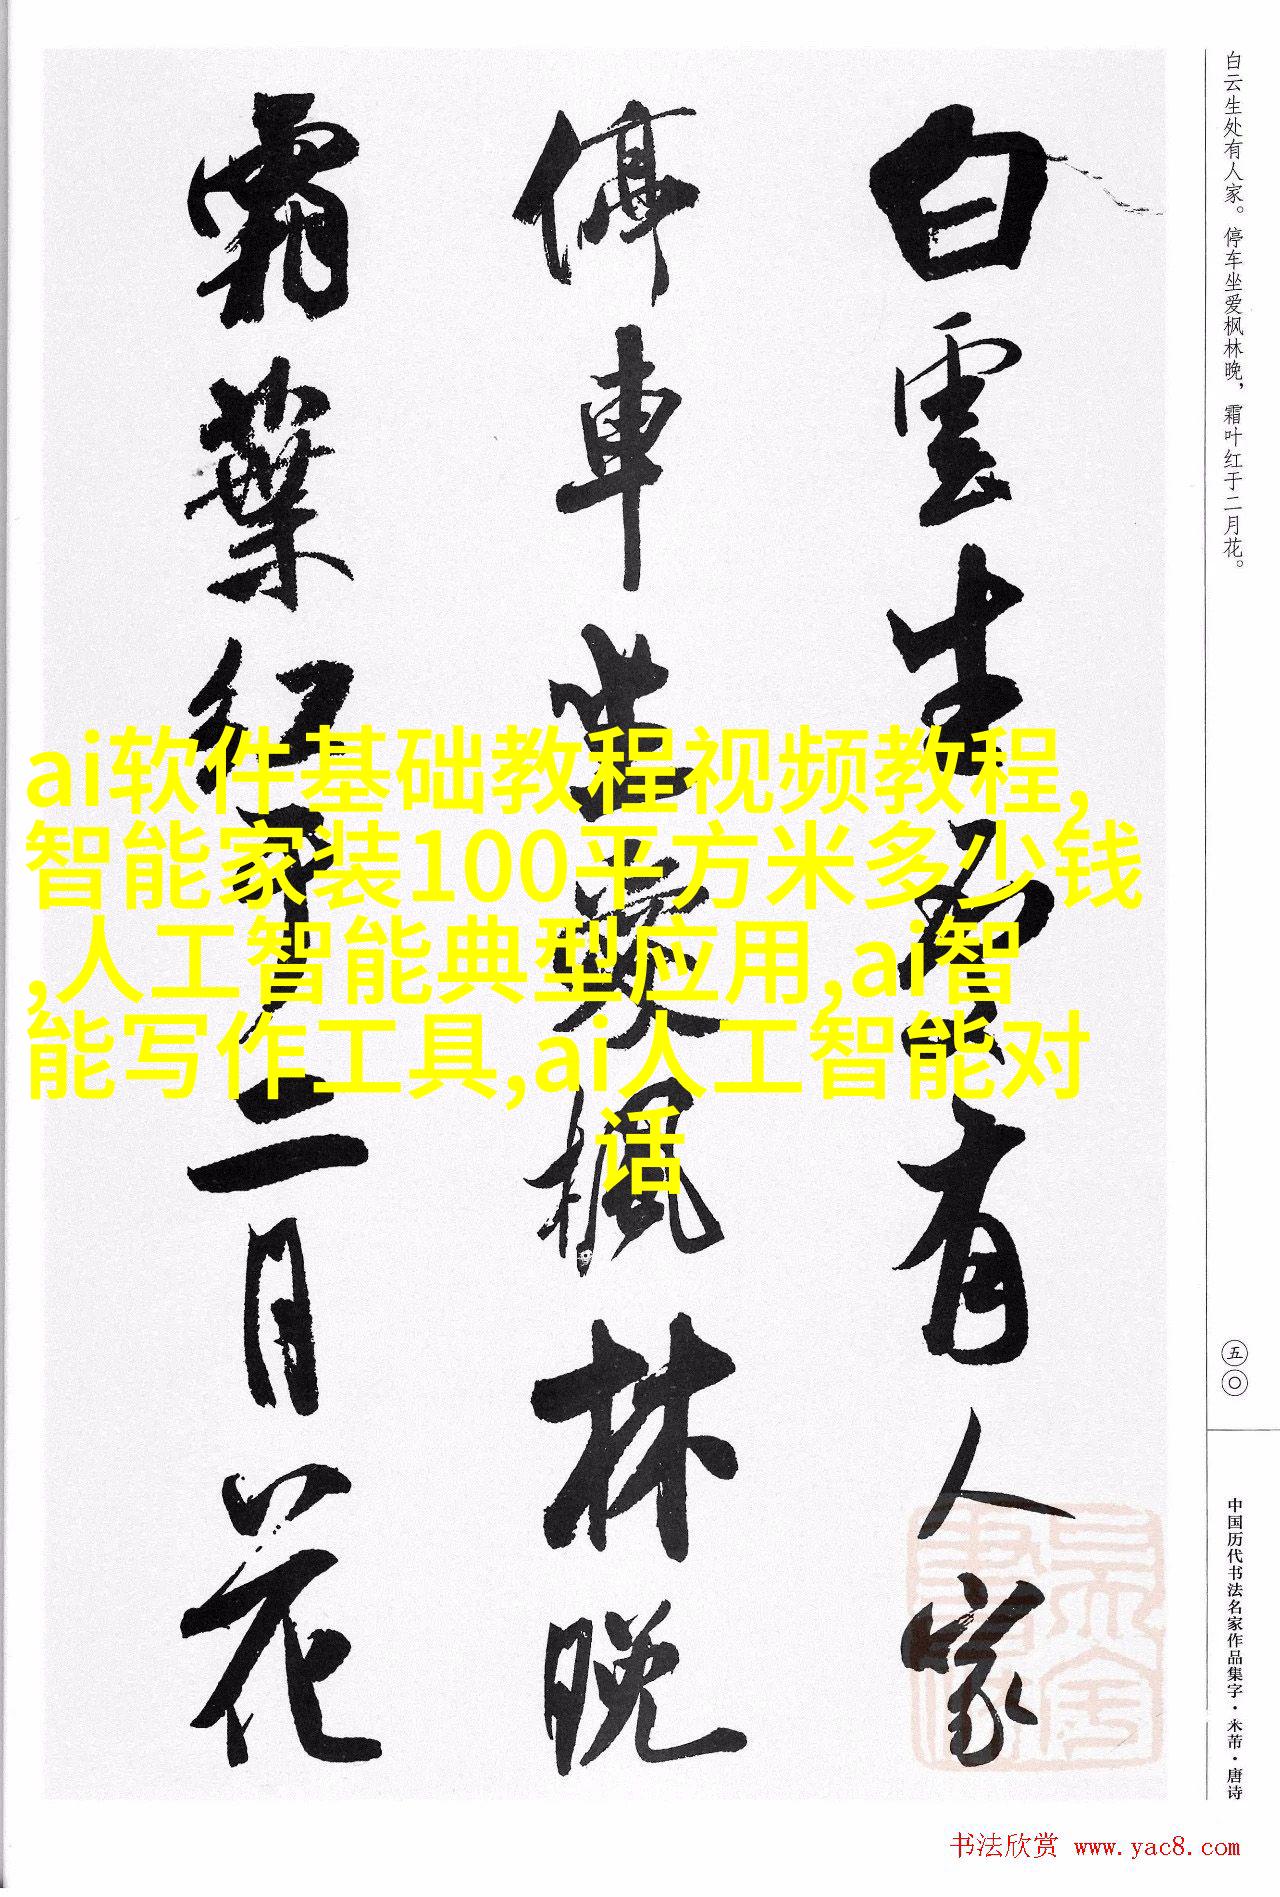 白云生处有人家。停车坐爱枫林晚，霜叶红于二月花。
白雲生處有人家
停車坐愛枫林晚
霜葉红于二月花
ai软件基础教程视频教程,
智能家装100平方米多少钱
,人工智能典型应用,ai智
能写作工具,ai人工智能对
话
五〇
中国历代书法名家作品集字·米芾·唐诗
书法欣赏 www.yac8.com